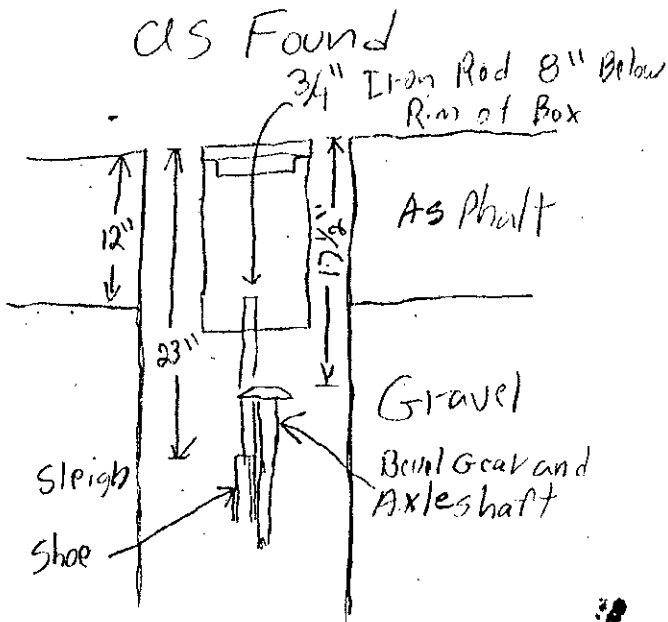 as Found
3/4" Iron Rod 8" Below
Rim of Box
12"
23"
17 1/2"
Asphalt
Gravel
Sleigh
Shoe
Bevel Gear and
Axleshaft